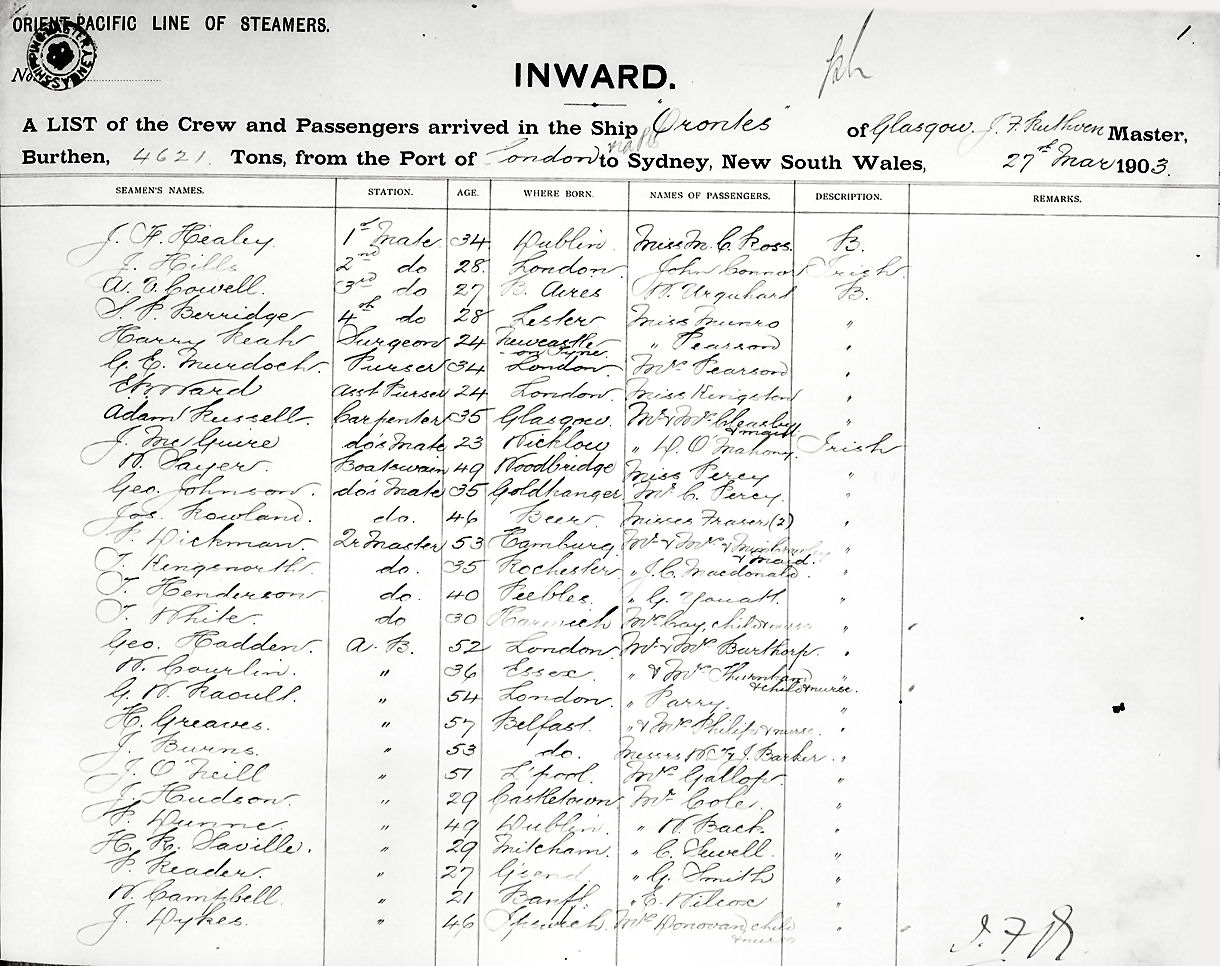 ORIENT-PACIFIC LINE OF STEAMERS.
1
No.
INWARD.
A LIST of the Crew and Passengers arrived in the Ship "Orontes" of Glasgow, J. F. Ruthven Master,
Burthen, 4621 Tons, from the Port of London to Sydney, New South Wales, 27th Mar 1903.
SEAMEN'S NAMES. STATION. AGE. WHERE BORN. NAMES OF PASSENGERS. DESCRIPTION. REMARKS.
J. F. Healey 1st Mate 34 Dublin Miss M. C. Ross B.
J. Hills 2nd do 28 London John Connor Irish
A. Cowell 3rd do 27 B. Aires W. Urquhart B.
S. P. Berridge 4th do 28 Lester Miss Munro "
Harry Surgeon 24 Newcastle on Tyne " Pearson "
G. E. Murdoch Purser 34 London Mrs Pearson "
Ward asst Purser 24 London Miss Kingston "
Adam Russell Carpenter 35 Glasgow Mr & Mrs "
J. McGuire do's Mate 23 Wicklow " O'Mahony Irish
W. Sayer Boatswain 49 Woodbridge Miss Percy "
Geo. Johnson do's Mate 35 Goldhanger Mr C. Percy "
Jos. Rowland do. 46 Beer Misses Fraser (2) "
P. Dickman Qr Master 53 Hamburg Mr & Mrs & maid "
T. Kingsnorth do. 35 Rochester " J. C. Macdonald "
T. Henderson do. 40 Peebles " G. Youatt "
T. White do 30 Harwich child & nurse "
Geo. Hadden A. B. 52 London Mr & Mrs Barthorp "
W. Courlin " 36 Essex " & Mrs & child & nurse "
G. W. Raoult " 54 London " Parry "
H. Greaves " 57 Belfast " & Mrs Philips & nurse "
J. Burns " 53 do. Messrs W. & J. Barker "
J. O'Neill " 51 L'pool Mrs Gallop "
J. Hudson " 29 Castletown Mr Cole "
P. Dunne " 49 Dublin " W. Back "
H. R. Saville " 29 Mitcham " C. Sewell "
P. Reader " 27 " G. Smith "
W. Campbell " 21 Banff " E. Wilcox "
J. Dykes " 46 Ipswich Mrs Donovan child & nurse "
J. F. R.